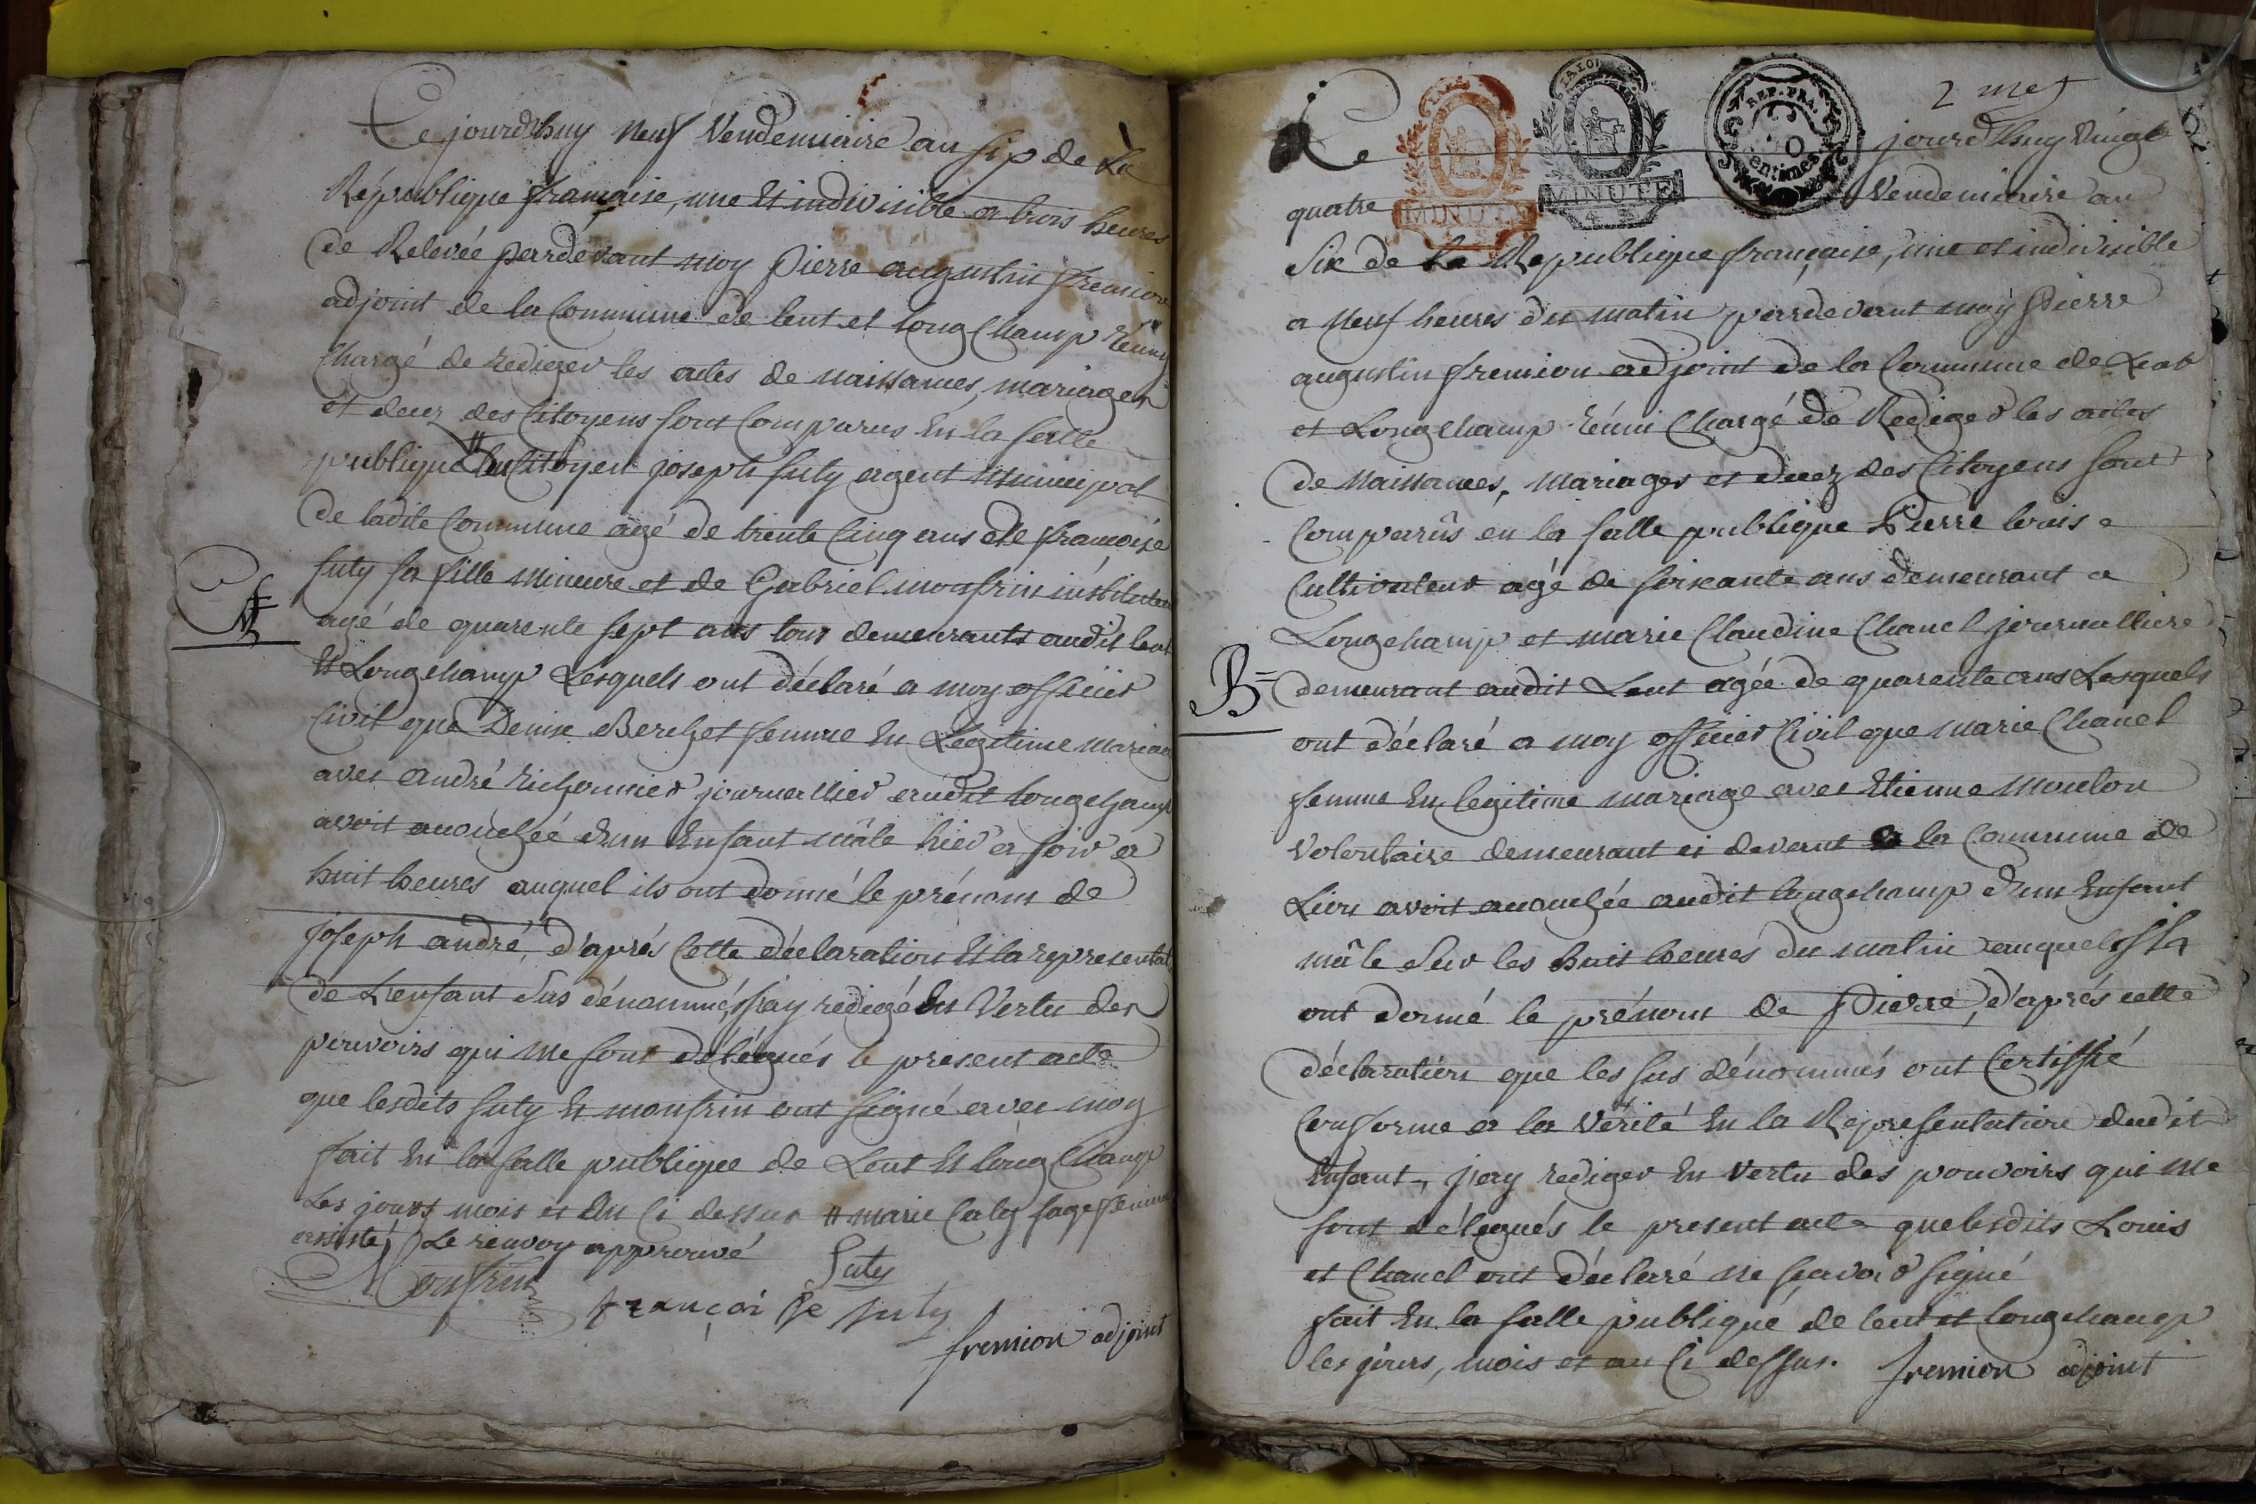 Cejourdhuy neuf Vendemiaire an six de La
République francaise, une et indivisible a trois heures
de Relevée pardevant moy Pierre augustin fremion
adjoint de la Commune de lent et longchamp réuny
Chargé de rediger les actes de naissances, mariages
et decez des Citoyens sont Comparus En la salle
publique # le Citoyen joseph suty agent municipal
de ladite Commune agé de trente Cinq ans de françoise
suty sa fille mineure et de Gabriel monfrin instituteur
agé de quarente sept ans tous demeurants audit lent
Et Longchamp Lesquels ont déclaré a moy officier
Civil que Denise Berchet femme En Legitime mariage
avec andré richonnier journallier audit longchamp
avoit accouchée d'un Enfant mâle hier a soir a
huit heures auquel ils ont donné le prénom de
joseph andré, d'après Cette déclaration Et la representat
de L'enfant sus dénommés j'ay redigé En Vertu des
pouvoirs qui me sont délegués le present acte
que lesdits suty Et monfrin ont signé avec moy
fait En la salle publique de Lent Et longchamp
Les jours mois et an Ci dessus # marie Caly sage femme
assisté, Le renvoy approuvé
Monfrin Suty
françoise suty
fremion adjoint
N
2 me
MINUTE
MINUTE
REP. FRA.
centimes
Ce jourdhuy Vingt
quatre Vendemiaire an
Six de la Republique française, une et indivisible
a neuf heures du matin pardevant moy Pierre
augustin fremion adjoint de la Commune de Lent
et Longchamp réuni Chargé de Rediger les actes
de naissances, mariages et decez des Citoyens sont
Comparûs en la salle publique Pierre louis
Cultivateur agé de soixante ans demeurant a
Longchamp et marie Claudine Chanel journalliere
demeurant audit Lent agée de quarente ans Lesquels
ont déclaré a moy officier Civil que marie Chanel
femme En legitime mariage avec Etienne mouton
volontaire demeurant ci devant la Commune de
avoit accouchée audit longchamp d'un Enfant
mâle sur les huit heures du matin auquel ils
ont donné le prénom de Pierre, d'après cette
déclaration que les sus dénommés ont Certiffié
Conforme a la vérité En la Representation dudit
Enfant, j'ay rediger En vertu des pouvoirs qui me
sont délegués le present acte que lesdits Louis
et Chanel ont déclaré ne sçavoir signé
fait En la salle publique de lent et longchamp
les jours, mois et an Ci dessus. fremion adjoint
B=